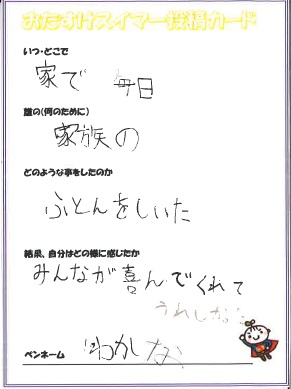 おたすけスイマー投稿カード
いつ・どこで
家で 毎日
誰の(何のために)
家族の
どのような事をしたのか
ふとんをしいた
結果、自分はどの様に感じたか
みんなが喜んでくれて
うれしかった
ペンネーム
わかしな